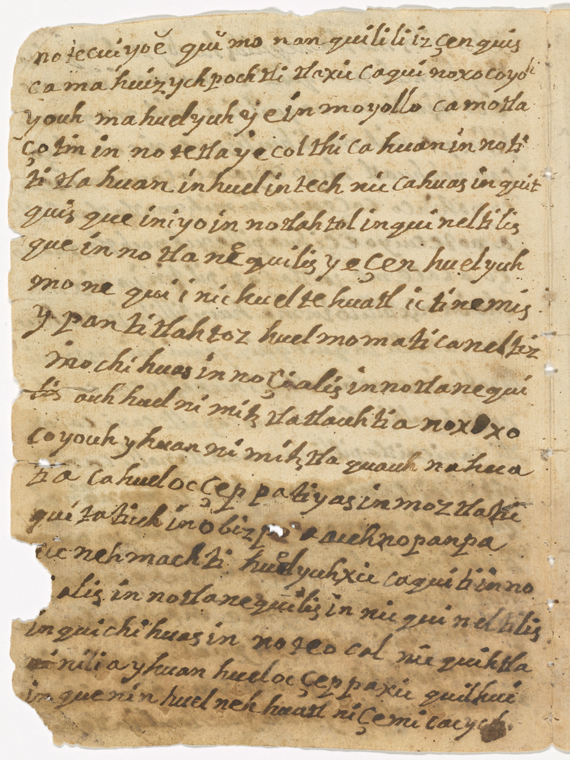 notecuiyoē qui mo nan quilili izçenquis
ca ma huizychpochtli tlaxic caqui noxocoyo
youh ma huel yuh y e in moyollo ca motla
çotin in no tetlayecolthi ca huan in noti
ti tla huan in huel in tech nic cahuas in quit
quis que iniyo in notlahtol in qui neltilis
que in no tla nequilis yeçen huel yuh
mo ne qui i nic huel tehuatl ic tinemis
y pan titlahtoz huel momati ca neltiz
mochihuas in noçialis in notlanequi
lis auh huel ni mitz tlatlauhtia noxoxo
coyouh yhuan ni mitztla quauh nahua
tia ca huel occeppa tiyas in moztlatti
quitatiuh in obizpo auh nopanpa
tic nehmachti huel yuh xic caqui ti in no
ialis in notlanequilis in nic qui neltilis
in quichihuas in noteo cal nic quihtla
nilia yhuan huel occeppa xic quilhui
in quenin huel nehhuatl niçemicacych